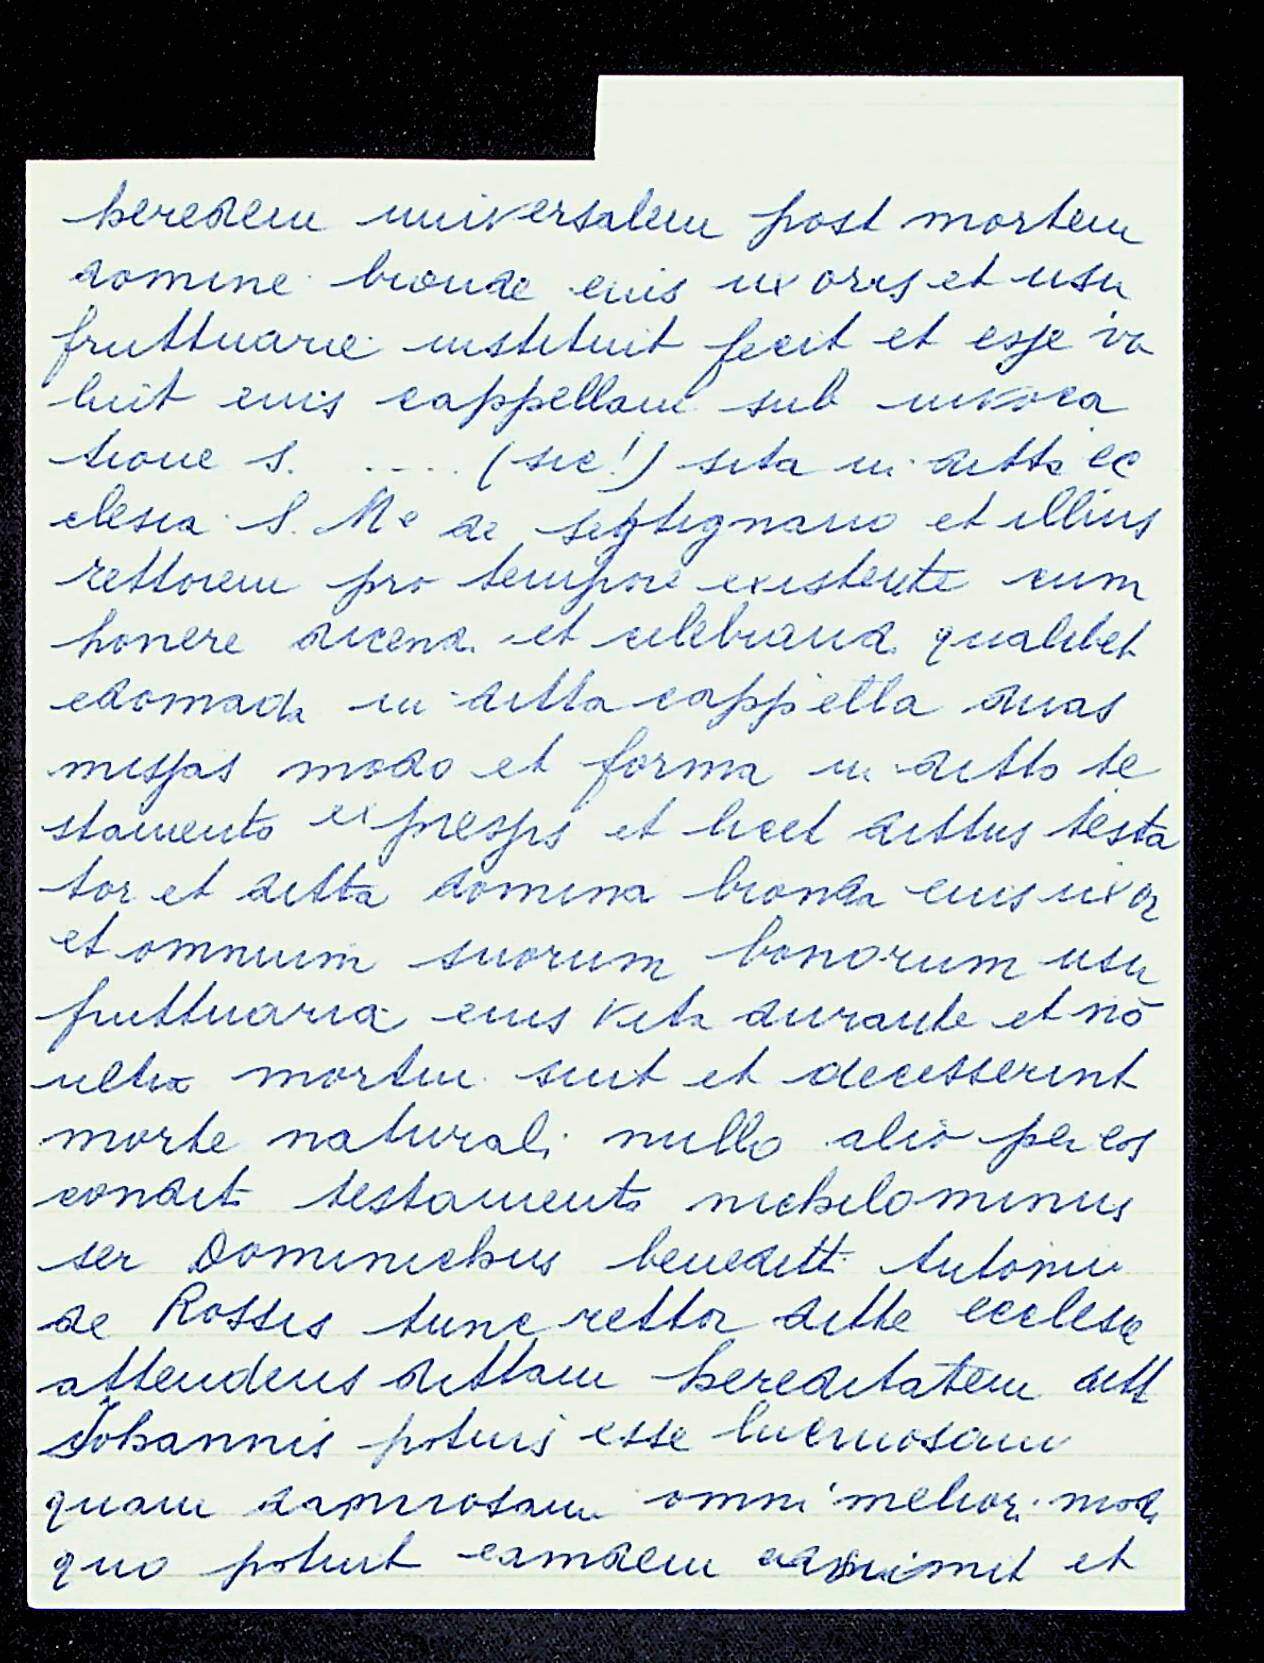 heredem universalem post mortem
domine bionde eius uxoris et usu
fruttuarie instituit fecit et esse vo
luit eius cappellam sub invoca
tione S. .... (sic!) sita in ditta ec
clesia S. Me de Septignano et illius
rettorem pro tempore existente cum
honere dicend. et celebrand. qualibet
edomada in ditta cappella duas
missas modo et forma in ditto te
stamento expressis et licet dittus testa
tor et ditta domina bionda eius uxor
et omnium suorum bonorum usu
fruttuaria eius vita durante et nō
ultra mortui sint et decesserint
morte naturali nullo alio per eos
condit testamento nichilominus
ser Dominichus beneditti Antonii
de Rossis tunc rettor ditte ecclesie
attendens dittam hereditatem ditt
Johannis potius esse lucruosam
quam dapnosam omni meliori modo
quo potuit eamdem et